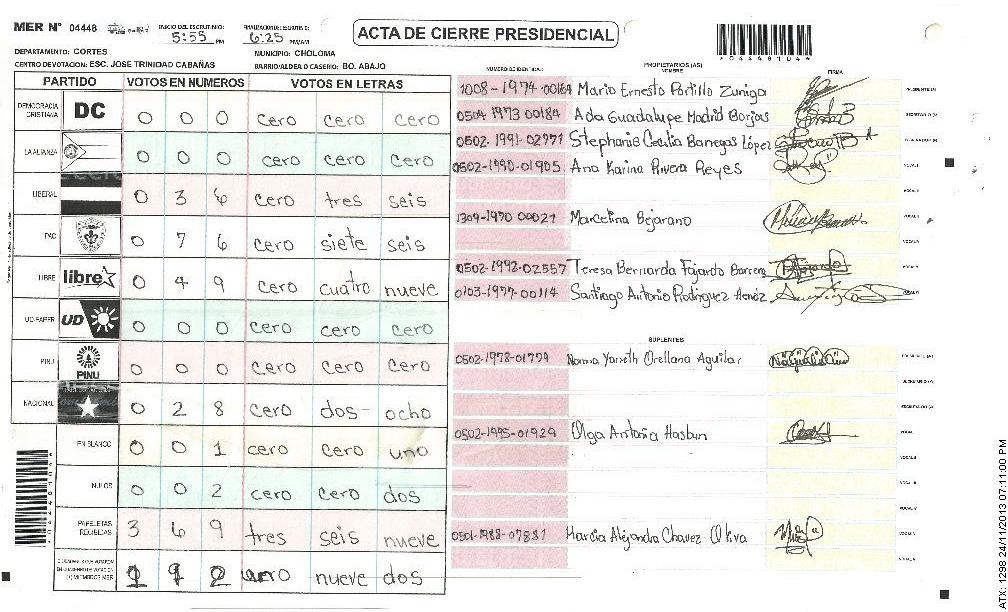 MER Nº 04448 INICIO DEL ESCRUTINIO: 5:55 PM FINALIZACION ESCRUTINIO: 6:25 PM/AM
ACTA DE CIERRE PRESIDENCIAL
*04448104*
DEPARTAMENTO: CORTES MUNICIPIO: CHOLOMA
CENTRO DE VOTACION: ESC. JOSE TRINIDAD CABAÑAS BARRIO/ALDEA O CASERIO: BO. ABAJO
PARTIDO VOTOS EN NUMEROS VOTOS EN LETRAS
DEMOCRACIA CRISTIANA DC 0 0 0 cero cero cero
LA ALIANZA 0 0 0 cero cero cero
LIBERAL 0 3 6 cero tres seis
PAC 0 7 6 cero siete seis
LIBRE libre 0 4 9 cero cuatro nueve
UD-FAPER UD 0 0 0 cero cero cero
PINU PINU 0 0 0 cero cero cero
NACIONAL 0 2 8 cero dos ocho
EN BLANCO 0 0 1 cero cero uno
NULOS 0 0 2 cero cero dos
PAPELETAS RECIBIDAS 3 6 9 tres seis nueve
(+) MIEMBROS MER 1 9 2 nueve dos
NUMERO DE IDENTIDAD PROPIETARIOS (AS) NOMBRE FIRMA
1008-1974-00164 Mario Ernesto Portillo Zuniga
0504 1973 00184 Ada Guadalupe Madrid Borjas
0502-1991-02771 Stephanie Cecilia Banegas López
0502-1990-01905 Ana Karina Rivera Reyes
1309-1970 00021 Marcelina Bejarano
0502-1992-02557 Teresa Bernarda Fajardo
0103-1977-00114 Santiago Antonio Rodriguez
SUPLENTES
0502-1978-01774 Norma Yaneth Orellana Aguilar
0502-1995-01929 Olga Antonia
0501-1988-07831 Marcia Alejandra Chavez Oliva
ATX: 1298 24/11/2013 07:11:00 PM